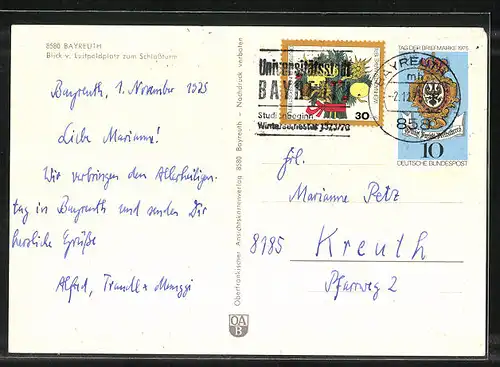 8580 BAYREUTH
Blick v. Luitpoldplatz zum Schloßturm
Bayreuth, 1. November 1975
Liebe Marianne!
Wir verbringen den Allerheiligen-
tag in Bayreuth und senden Dir
herzliche Grüße
Alfred, Traudl +
Oberfränkischer Ansichtskartenverlag 8580 Bayreuth - Nachdruck verboten
OA
B
Universitätsstadt
BAYREUTH
Studienbeginn
Wintersemester
30
TAG DER BRIEFMARKE 1975
BAYREUTH
mh
858
10
DEUTSCHE BUNDESPOST
Frl.
Marianne Petz
8185 Kreuth
Pfarrweg 2